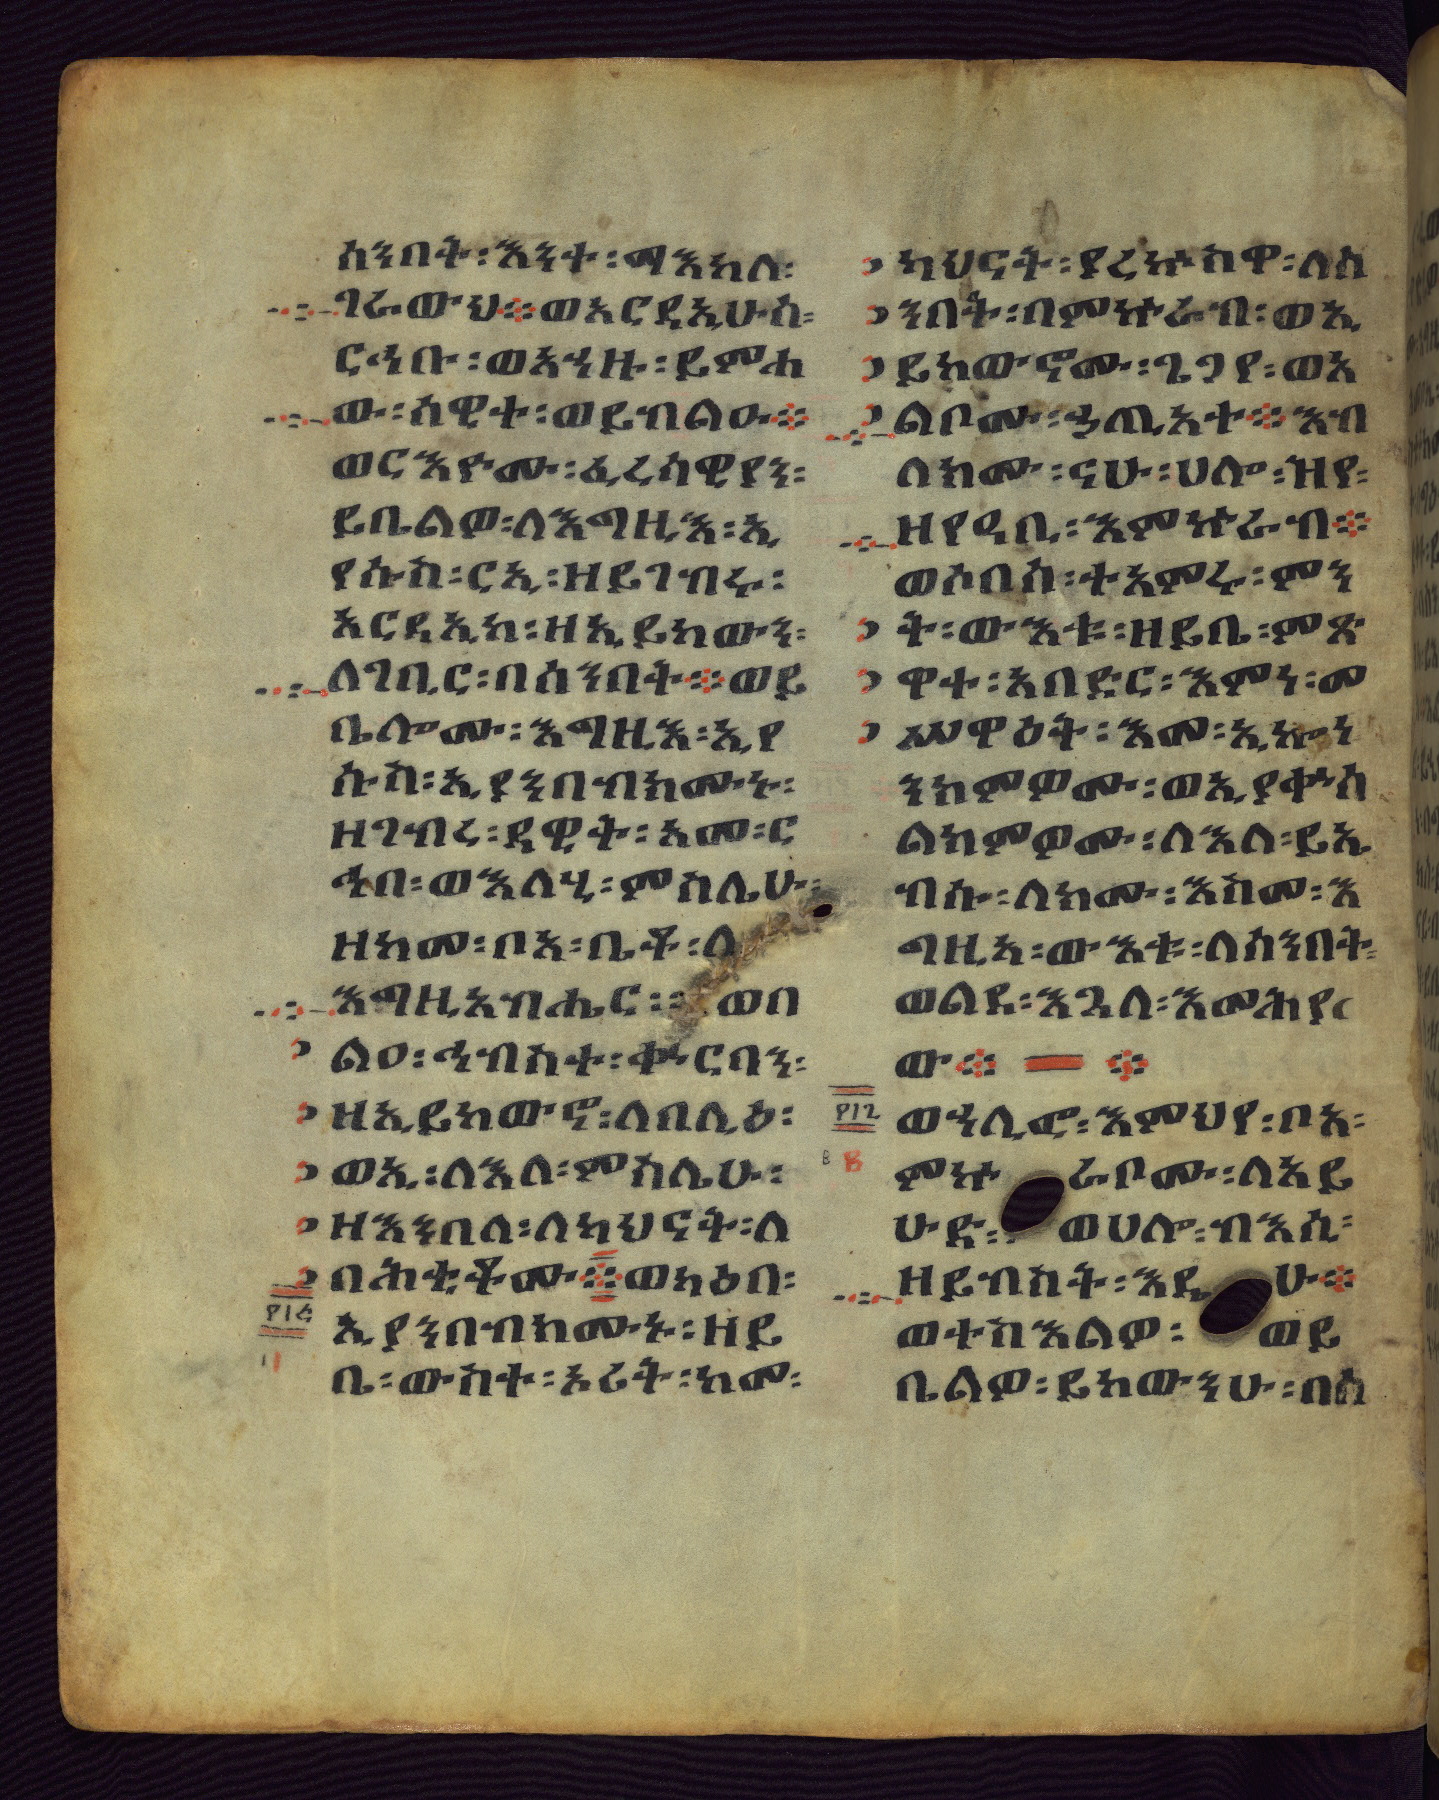 ሰንበት፡እንተ፡ማእከለ፡
ገራውህ፨ወአርዳኢሁሰ፡
ርኅቡ፡ወአኀዙ፡ይምሐ
ው፡ሰዊተ፡ወይብልዑ፨
ወርእዮሙ፡ፈሪሳዊያን፡
ይቤልዎ፡ለእግዚእ፡ኢ
የሱስ፡ርኢ፡ዘይገብሩ፡
አርዳኢከ፡ዘኢይከውን፡
ለገቢር፡በሰንበት፨ወይ
ቤሎሙ፡እግዚእ፡ኢየ
ሱስ፡ኢያንበብክሙኑ፡
ዘገብረ፡ዳዊት፡አመ፡ር
ኅበ፡ወእለሂ፡ምስሌሁ፡
ዘከመ፡ቦአ፡ቤቶ፡ለ
እግዚአብሔር፡፡ወበ
ልዐ፡ኅብስተ፡ቍርባን፡
ዘኢይከውኖ፡ለበሊዕ፡
ወኢ፡ለእለ፡ምስሌሁ፡
ዘእንበለ፡ለካህናት፡ለ
በሕቲቶሙ፨ወካዕበ፡
፻፲፭
ኢያንበብክሙኑ፡ዘይ
ቤ፡ውስተ፡ኦሪት፡ከመ፡
ካህናት፡ያረኵስዋ፡ለሰ
ንበት፡በምኵራብ፡ወኢ
ይከውኖሙ፡ጌጋየ፡ወአ
ልቦሙ፡ኃጢአተ፨እብ
ለክሙ፡ናሁ፡ሀሎ፡ዝየ፡
ዘየዐቢ፡እምኵራብ፨
ወሶበሰ፡ተአምሩ፡ምን
ት፡ውእቱ፡ዘይቤ፡ምጽ
ዋተ፡አበድር፡እምነ፡መ
ሥዋዕት፡እመ፡ኢኰነ
ንክምዎሙ፡ወኢያቅሰ
ልክምዎሙ፡ለእለ፡ይኤ
ብሱ፡ለክሙ፡እስመ፡እ
ግዚአ፡ውእቱ፡ለሰንበት፡
ወልደ፡እጓለ፡እመሕያ
ው፨ ፨
፻፲፮
ወኀሊፎ፡እምህየ፡ቦአ፡
ምኵራቦሙ፡ለአይ
ሁድ፡ወሀሎ፡ብእሲ፡
ዘይብስት፡እዴሁ፨
ወተስእልዎ፡ወይ
ቤልዎ፡ይከውንሁ፡በሰ